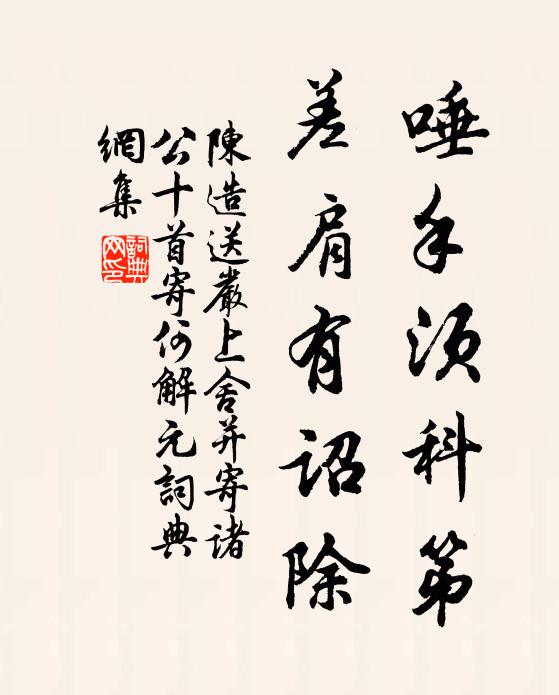 唾手須科第
差肩有詔除
陳造送嚴上舍并寄諸
公十首寄何解元詞典
網集
詞典网印